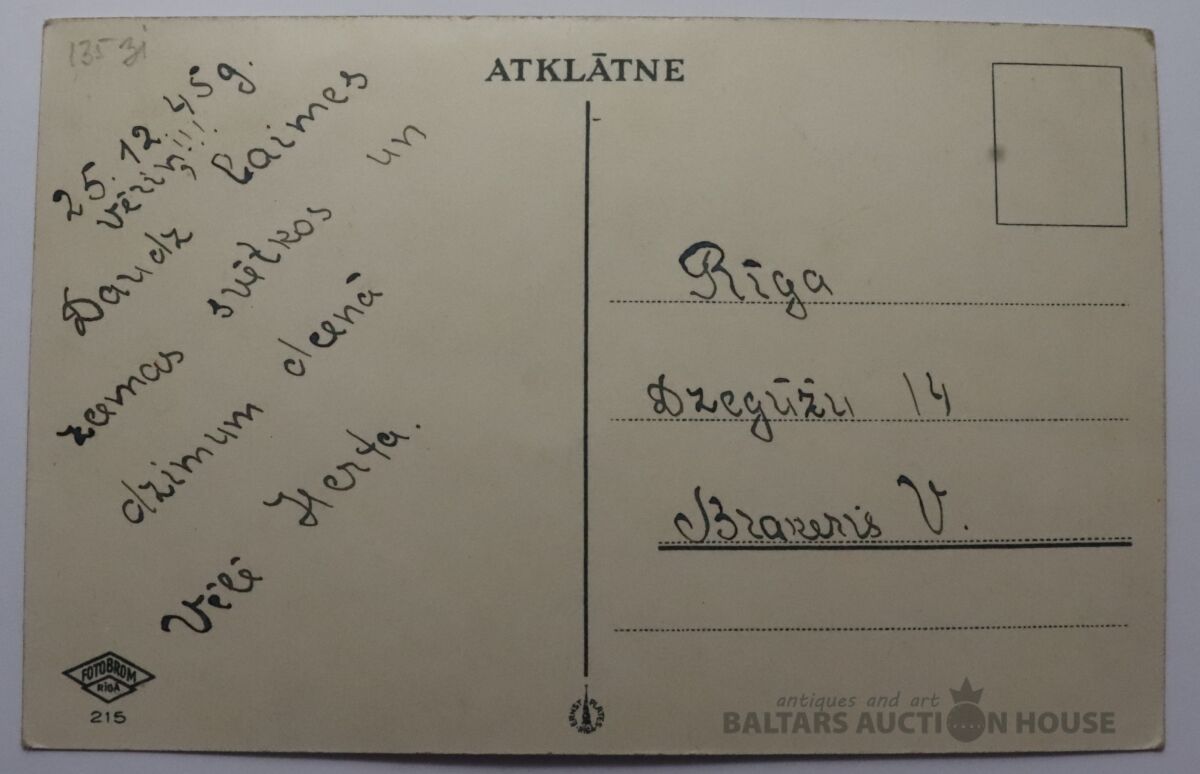 135 zi
ATKLĀTNE
25. 12. 45 g.
Vēriņ!!!
Daudz Laimes
zemas svētkos un
dzimum dcenā
Vēlē Herta.
Rīga
Dzegūžu 14
Brakeris V.
FOTOBROM
RĪGĀ
215
ERNST PLATES RIGA
antiques and art
BALTARS AUCTION HOUSE